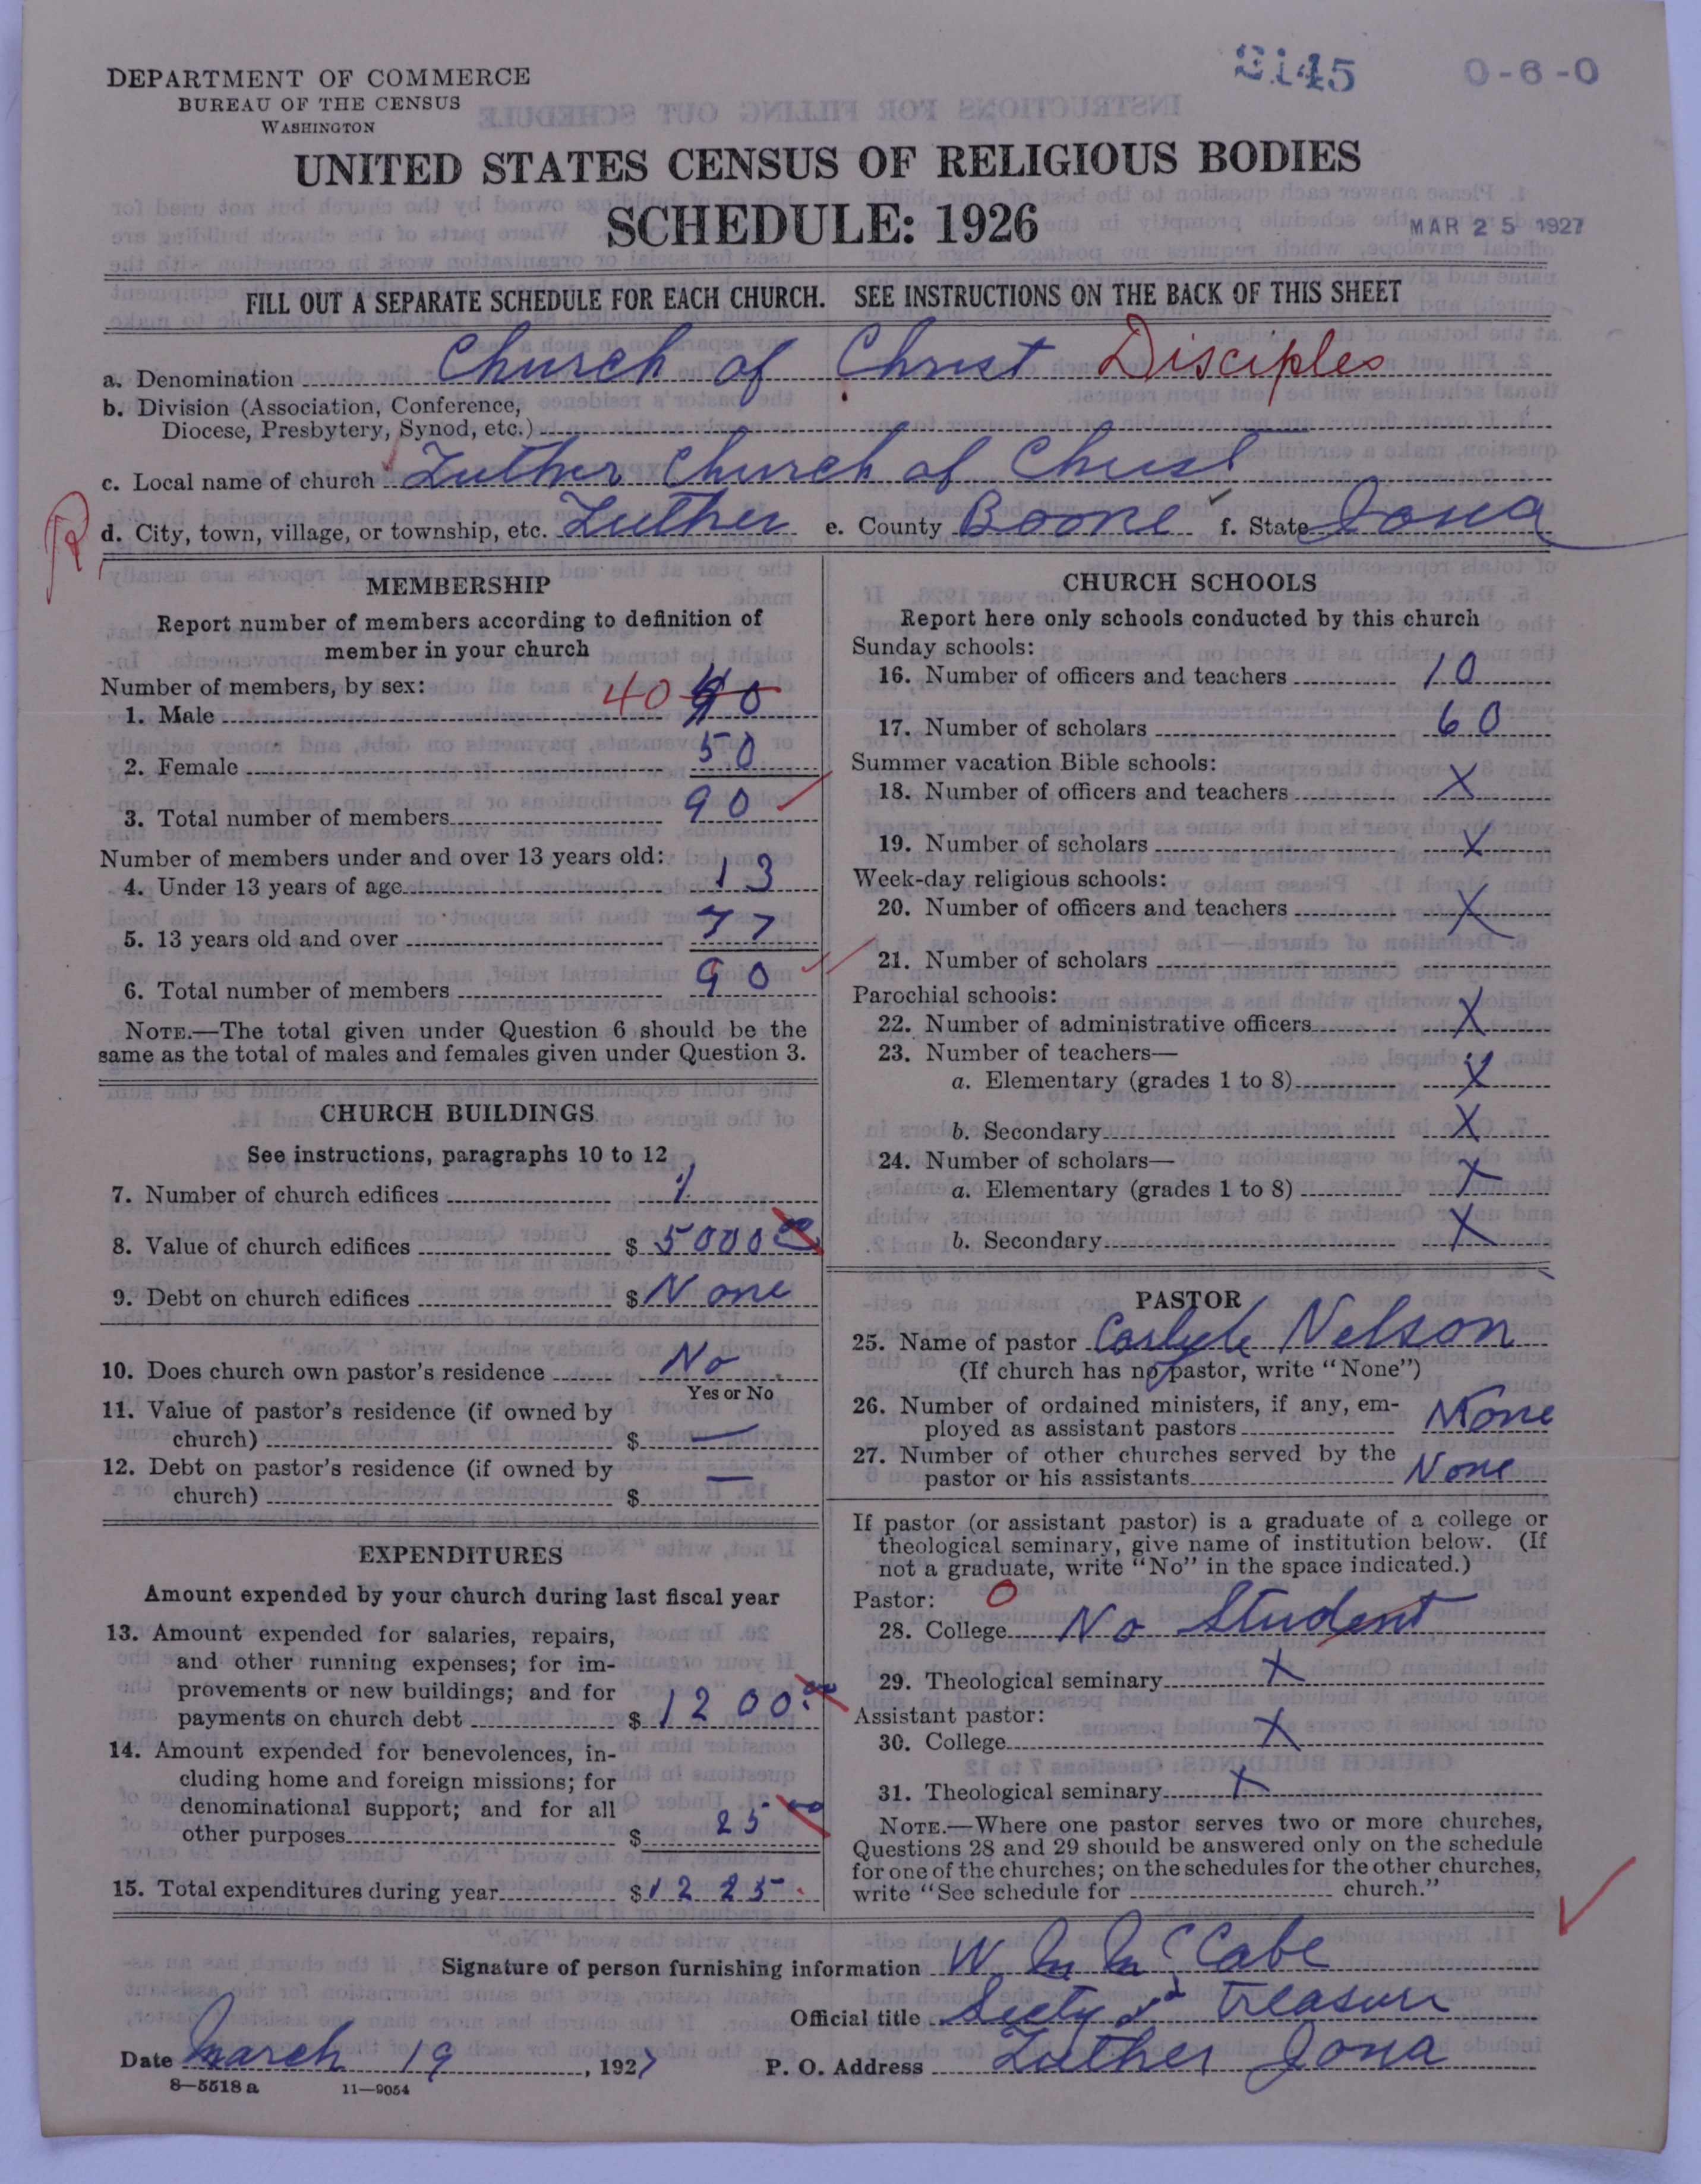 DEPARTMENT OF COMMERCE
BUREAU OF THE CENSUS
WASHINGTON
2145
0-6-0
UNITED STATES CENSUS OF RELIGIOUS BODIES
SCHEDULE: 1926
MAR 25 1927
FILL OUT A SEPARATE SCHEDULE FOR EACH CHURCH. SEE INSTRUCTIONS ON THE BACK OF THIS SHEET
a. Denomination Church of Christ Disciples
b. Division (Association, Conference,
Diocese, Presbytery, Synod, etc.)
c. Local name of church Luther Church of Christ
d. City, town, village, or township, etc. Luther e. County Boone f. State Iowa
MEMBERSHIP
Report number of members according to definition of
member in your church
Number of members, by sex:
1. Male 40
2. Female 50
3. Total number of members 90
Number of members under and over 13 years old:
4. Under 13 years of age 13
5. 13 years old and over 77
6. Total number of members 90
NOTE.—The total given under Question 6 should be the
same as the total of males and females given under Question 3.
CHURCH BUILDINGS
See instructions, paragraphs 10 to 12
7. Number of church edifices 1
8. Value of church edifices $ 5000 00
9. Debt on church edifices $ None
10. Does church own pastor's residence No
Yes or No
11. Value of pastor's residence (if owned by
church) $ —
12. Debt on pastor's residence (if owned by
church) $ —
EXPENDITURES
Amount expended by your church during last fiscal year
13. Amount expended for salaries, repairs,
and other running expenses; for im-
provements or new buildings; and for
payments on church debt $ 1200.00
14. Amount expended for benevolences, in-
cluding home and foreign missions; for
denominational support; and for all
other purposes $ 25 00
15. Total expenditures during year $ 1225.
CHURCH SCHOOLS
Report here only schools conducted by this church
Sunday schools:
16. Number of officers and teachers 10
17. Number of scholars 60
Summer vacation Bible schools:
18. Number of officers and teachers X
19. Number of scholars X
Week-day religious schools:
20. Number of officers and teachers X
21. Number of scholars
Parochial schools:
22. Number of administrative officers X
23. Number of teachers—
a. Elementary (grades 1 to 8) X
b. Secondary X
24. Number of scholars—
a. Elementary (grades 1 to 8) X
b. Secondary X
PASTOR
25. Name of pastor Carlyle Nelson
(If church has no pastor, write "None")
26. Number of ordained ministers, if any, em-
ployed as assistant pastors None
27. Number of other churches served by the
pastor or his assistants None
If pastor (or assistant pastor) is a graduate of a college or
theological seminary, give name of institution below. (If
not a graduate, write "No" in the space indicated.)
Pastor: 0
28. College No Student
29. Theological seminary X
Assistant pastor:
30. College X
31. Theological seminary X
NOTE.—Where one pastor serves two or more churches,
Questions 28 and 29 should be answered only on the schedule
for one of the churches; on the schedules for the other churches,
write "See schedule for church."
Signature of person furnishing information W. M. McCabe
Official title Secty & Treasure
Date March 19, 1927 P. O. Address Luther Iowa
8-5518a 11-9054